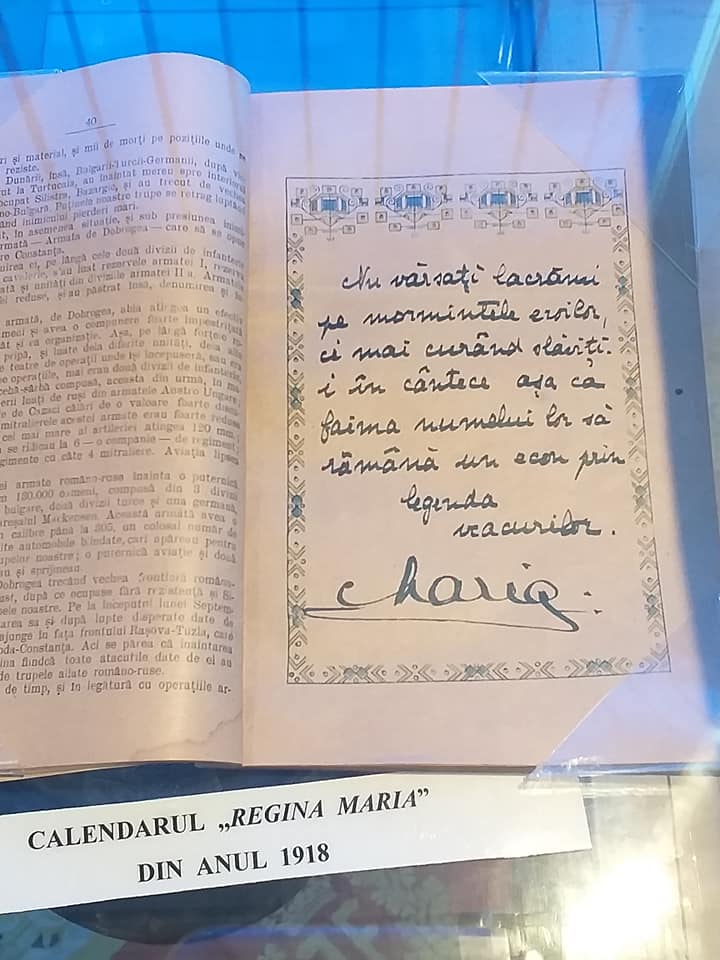 40
ri și material, și mii de morți pe pozițiile unde
reziste.
Dunării, însă, Bulgarii-Turcii-Germanii, după
ut la Tortucaia, au înaintat mereu spre interiorul
ocupat Silistra, Bazargic, și au trecut de vechea
no-Bulgară. Puținele noastre trupe se retrag luptând
ând inimicului pierderi mari.
t, în asemenea situație, și sub presiunea
rmată — Armata de Dobrogea — care să se opue
re Constanța.
uirea ei, pe lângă cele două divizii de infanterie
cavalerie, s'au luat rezervele armatei I, rezerva
ată și unități din diviziile armatei II a. Armatele
lei reduse, și-au păstrat însă, denumirea și
armată, de Dobrogea, abia atingea un efectiv
meci și avea o componere foarte împestrițată
ât și ca organizație. Așa, pe lângă forțele
pripă, și luate dela diferite unități, dela
e teatre de operații unde își începuseră, sau
e operațiile, mai erau două divizii de infanterie,
cehă-sârbă compusă, aceasta din urmă, în
erii luați de ruși din armatele Austro Ungare
e de Cazaci călări de o valoare foarte
mitralierele acestei armate erau foarte reduse
cel mai mare al artileriei atingea 120 mm.;
se ridicau la 6 — o companie — de regiment;
gimente cu câte 4 mitraliere. Aviația lipsea
ei armate româno-ruse înainta o puternică
m 180.000 oameni, compusă din 3 divizii
bulgare, două divizii turce și una germană,
areșalul Mackensen. Această armată avea o
n calibre până la 305, un colosal număr de
ite automobile blindate, cari apăreau pentru
upelor noastre; o puternică aviație și două
au și sprijineau.
Dobrogea trecând vechea frontieră româno-
ust, după ce ocupase fără rezistență și Si-
pele noastre. Pe la începutul lunei Septem-
tarea sa și după lupte disperate date de
ajunge în fața frontului Rașova-Tuzla, care
oda-Constanța. Aci se părea că înaintarea
ina fiindcă toate atacurile date de ei au
de trupele aliate româno-ruse.
de timp, și în legătură cu operațiile ar-
Nu vărsați lacrămi
pe mormintele eroilor,
ci mai curând slăviți-
i în cântece așa ca
faima numelui lor să
rămână un ecou prin
legenda
veacurilor.
Maria.
CALENDARUL „REGINA MARIA”
DIN ANUL 1918